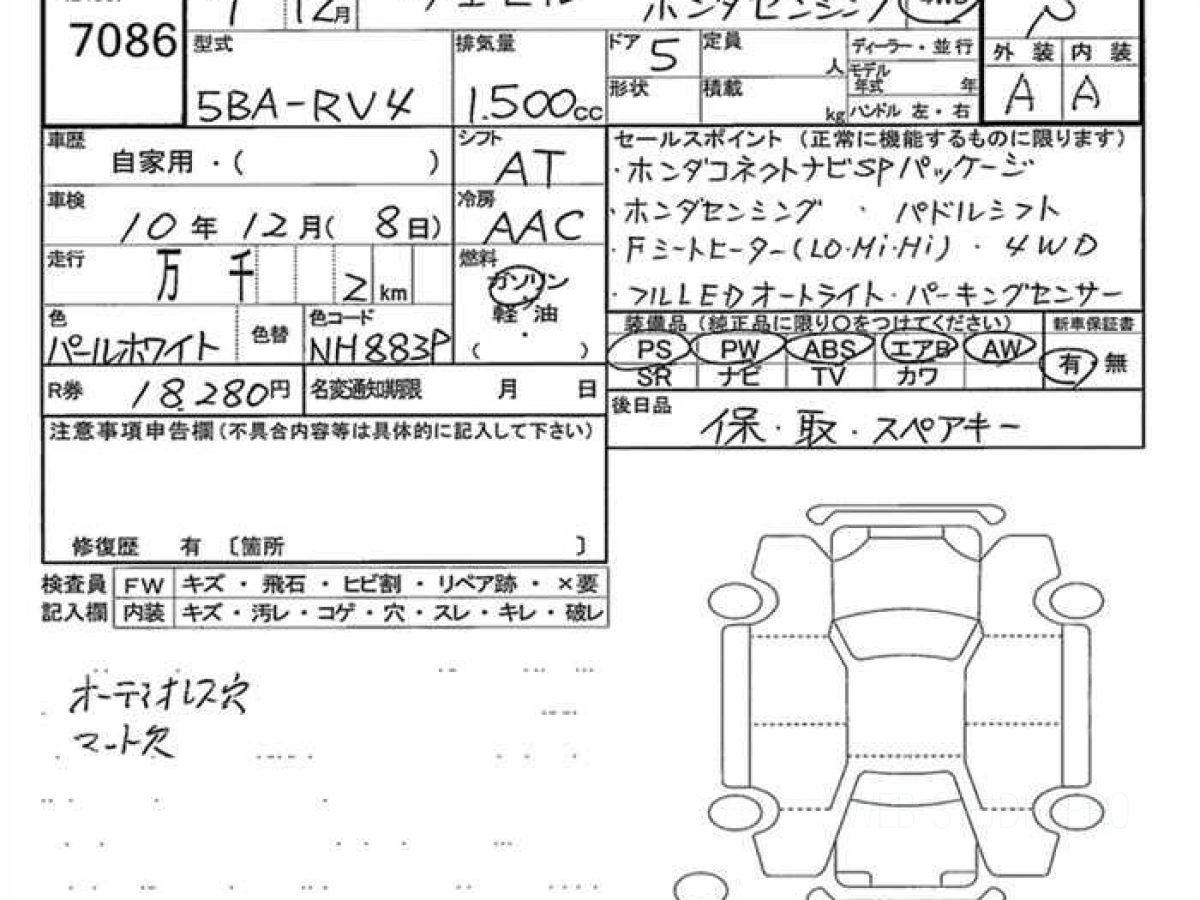 12月
ホンダセンシング 4WD
7086
型式
5BA-RV4
排気量
1.500cc
ドア 5
定員
人
形状
積載
kg
ディーラー・並行
モデル年式 年
ハンドル 左・右
外装 内装
A A
車歴
自家用・( )
シフト
AT
車検
10年12月(8日)
冷房
AAC
走行
万 千 2 km
燃料
ガソリン
軽・油
・
( )
色
パールホワイト
色替
色コード
NH883P
R券 18.280円
名変通知期限 月 日
セールスポイント(正常に機能するものに限ります)
・ホンダコネクトナビSPパッケージ
・ホンダセンシング ・ パドルシフト
・Fシートヒーター(LO・Mi・Hi)・4WD
・フルLEDオートライト・パーキングセンサー
装備品(純正品に限り○をつけてください)
新車保証書
PS PW ABS エアB AW
SR ナビ TV カワ
有・無
後日品
保・取・スペアキー
注意事項申告欄(不具合内容等は具体的に記入して下さい)
修復歴 有 〔箇所 〕
検査員 FW キズ・飛石・ヒビ割・リペア跡・×要
記入欄 内装 キズ・汚レ・コゲ・穴・スレ・キレ・破レ
オーディオレス穴
マット欠